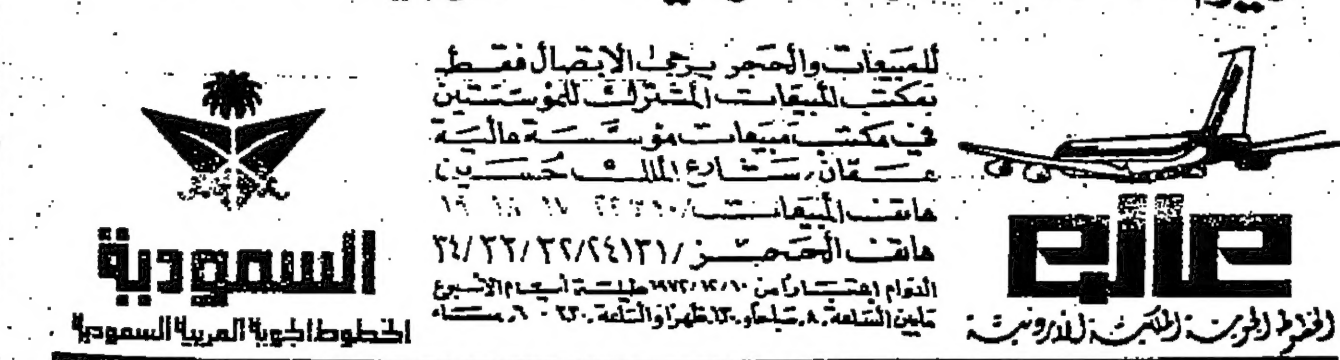 للمبيعات والحجز يرجى الاتصال فقط
بمكتب المبيعات المشترك للمؤسستين
في مكتب مبيعات مؤسسة عالية
عمّان، شارع الملك حسين
هاتف المبيعات/
هاتف الحجز /٢٤١٣١/ ٣٢/ ٣٣/ ٣٤
الدوام إعتباراً من ١٩٧٢/١٢/١٠ طيلة أيام الأسبوع
مابين الساعة ٨ صباحاً و ظهراً والساعة مساء
عالية
الخطوط الجوية الملكية الأردنية
السعودية
الخطوط الجوية العربية السعودية